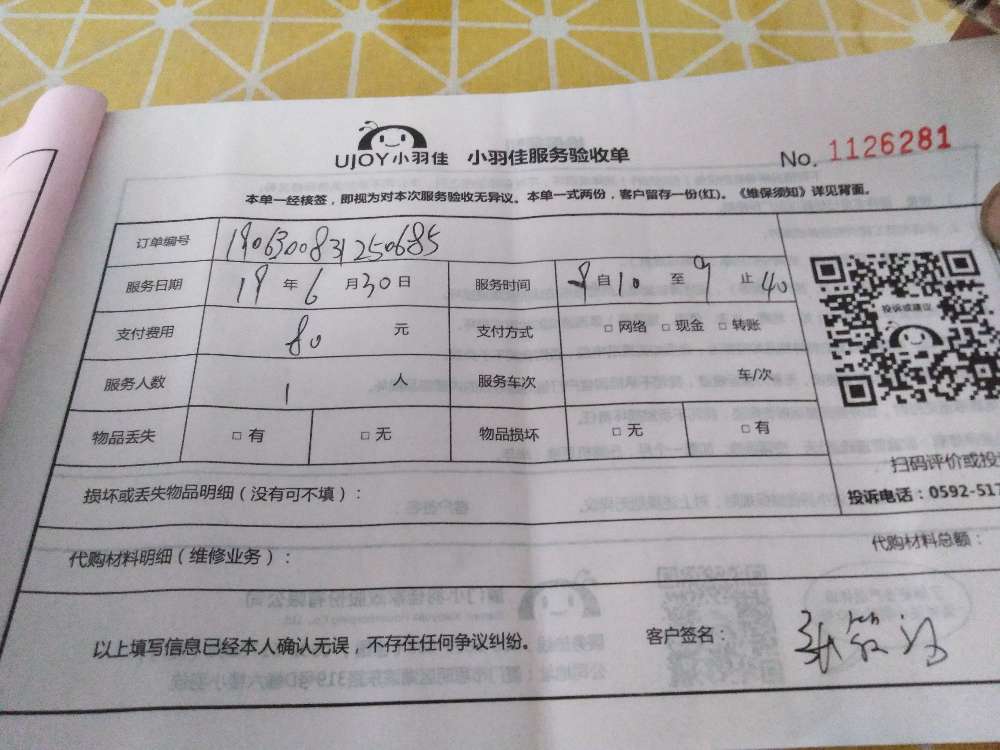 UJOY小羽佳 小羽佳服务验收单 No. 1126281
本单一经核签，即视为对本次服务验收无异议。本单一式两份，客户留存一份(红)。《维保须知》详见背面。
订单编号 1906300831250685
服务日期 19 年 6 月 30 日 服务时间 8 自 10 至 9 止 40
支付费用 80 元 支付方式 □ 网络 □ 现金 □ 转账
投诉或建议
服务人数 1 人 服务车次 车/次
物品丢失 □ 有 □ 无 物品损坏 □ 无 □ 有
扫码评价或投
损坏或丢失物品明细（没有可不填）：
投诉电话：0592-517
代购材料明细（维修业务）：
代购材料总额：
以上填写信息已经本人确认无误，不存在任何争议纠纷。 客户签名：